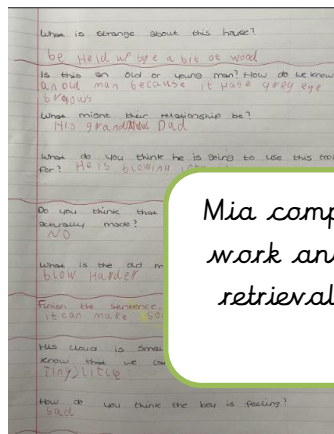 What is strange about this house?
be Held up bye a bit of wood
Is this an old or young man? How do we know
an old man because it Have grey eye
brows
What might their relationship be?
His grand Dad
What do you think he is going to use this too
for? He is blowing
Do you think that
actually made?
NO
What is the old m
blow Harder
Finish the sentence
it can make so
His cloud is small
know that we
Tiny) litle
How do you think the boy is feeling?
sad
Mia comp
work an
retrieval